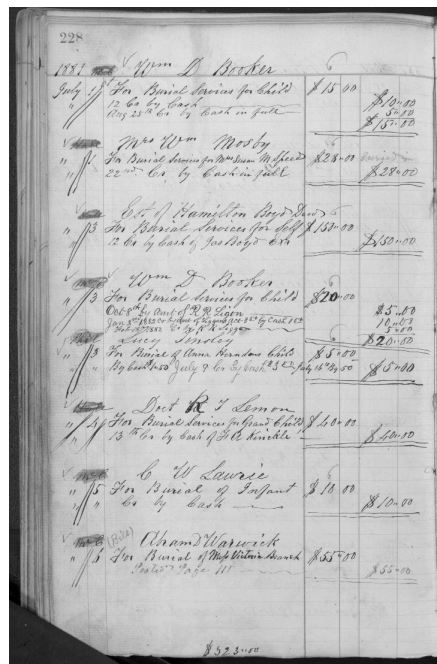 228
1881 Wm D Booker
July 1st For Burial Services for Child $15.00
12 Cr by Cash $10.00
Aug 25th Cr by Cash in full 5.00
$15.00
Mrs Wm Mosby
" 1 For Burial Services for Mrs Susan M Speed $28.00
22nd Cr by Cash in full $28.00
Est of Hamilton Boyd Decd
" 3 For Burial Services for Self $150.00
12 Cr by Cash of Jas Boyd Exr $150.00
Wm D Booker
" 3 For Burial Services for Child $20.00
Oct 8th by Amt of R R Ligon $5.00
Jan 3rd 1882 Cr by Cash 10.00
1882 Cr by R R Ligon 5.00
$20.00
Lucy Tinsley
" 3 For Burial of Anna Herndons Child $5.00
By Cash 1.50 July 9 Cr by Cash July 16th By 50 $5.00
Doct R T Lemon
" 4 For Burial Services for Grand Child $40.00
13th Cr by Cash of F A Kinckle $40.00
C W Lawrie
" 5 For Burial of Infant $10.00
" Cr by Cash $10.00
(Bill) Abram D Warwick
" 6 For Burial of Miss Victoria Branch $55.00
Posted Page 111 $55.00
$323.00